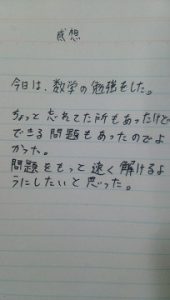 感想
今日は、数学の勉強をした。
ちょっと忘れてた所もあったけど
できる問題もあったのでよ
かった。
問題をもって速く解けるよ
うにしたいと思った。